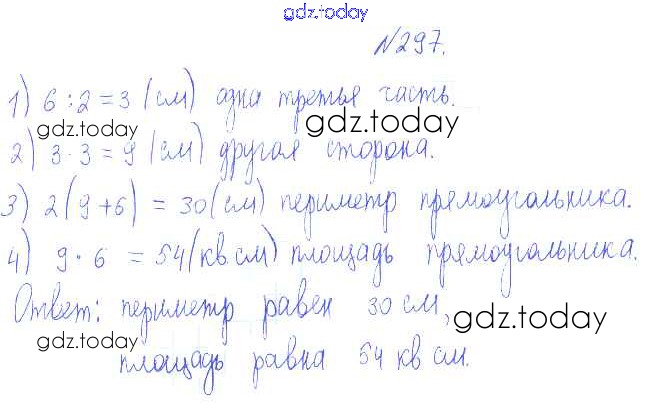 gdz.today
№297.
1) 6 : 2 = 3 (см) одна третья часть.
gdz.today
gdz.today
2) 3 · 3 = 9 (см) другая сторона.
3) 2(9+6) = 30(см) периметр прямоугольника.
4) 9 · 6 = 54(кв.см) площадь прямоугольника.
gdz.today
Ответ: периметр равен 30 см,
gdz.today
gdz.today
площадь равна 54 кв см.